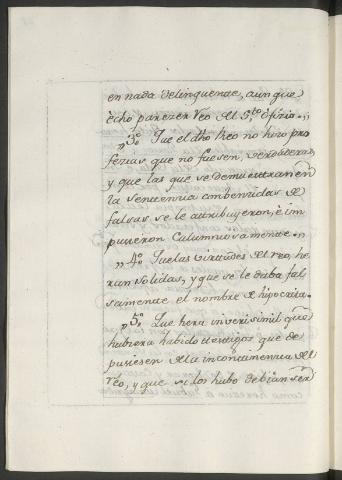 en nada delinquente, aunque
echo parezer Reo del S.to oficio.,,
,,3.º Que el dho Reo no hizo pro
fezias, que no fuesen verdaderas,
y que las que se demuestran en
la sentencia combenzidas de
falsas se le atribuyeron, è im
pusieron Calumniosamente.,,
,,4.º Que las virtudes del reo, he
ran solidas, y que se le daba fal
samente el nombre de hipocrita.
,,5.º Que hera inverisimil que
hubiera habido testigos que de
pusiesen de la incontinencia del
réo, y que si los hubo debian ser